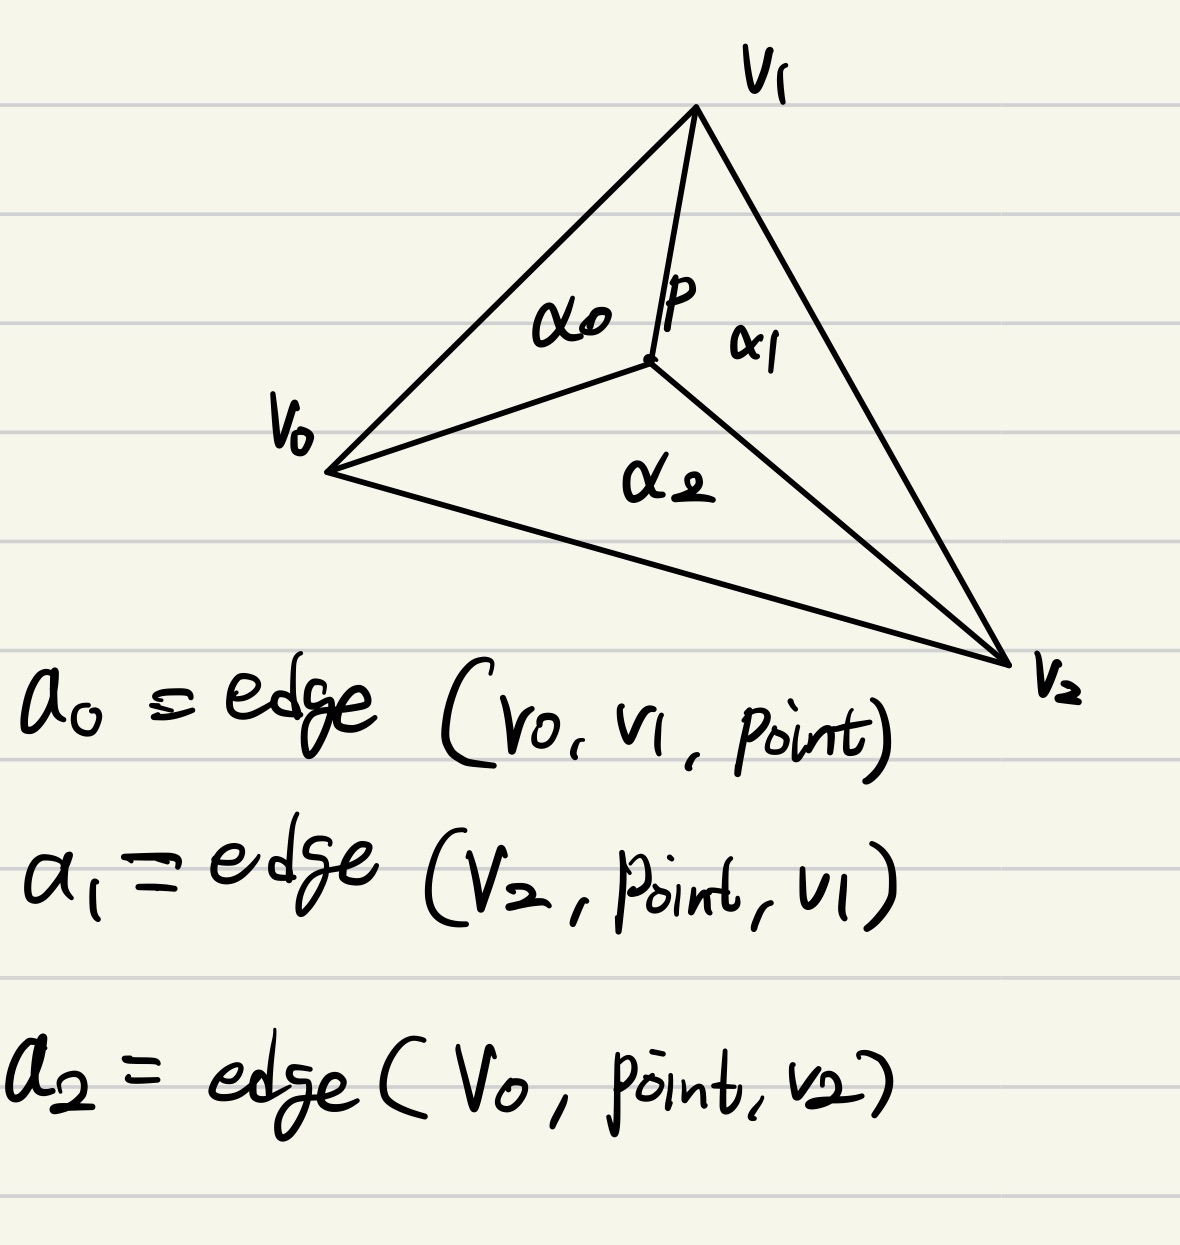 V1
P
α0
α1
V0
α2
V2
a0 = edge (V0, V1, point)
a1 = edge (V2, point, V1)
a2 = edge (V0, point, V2)